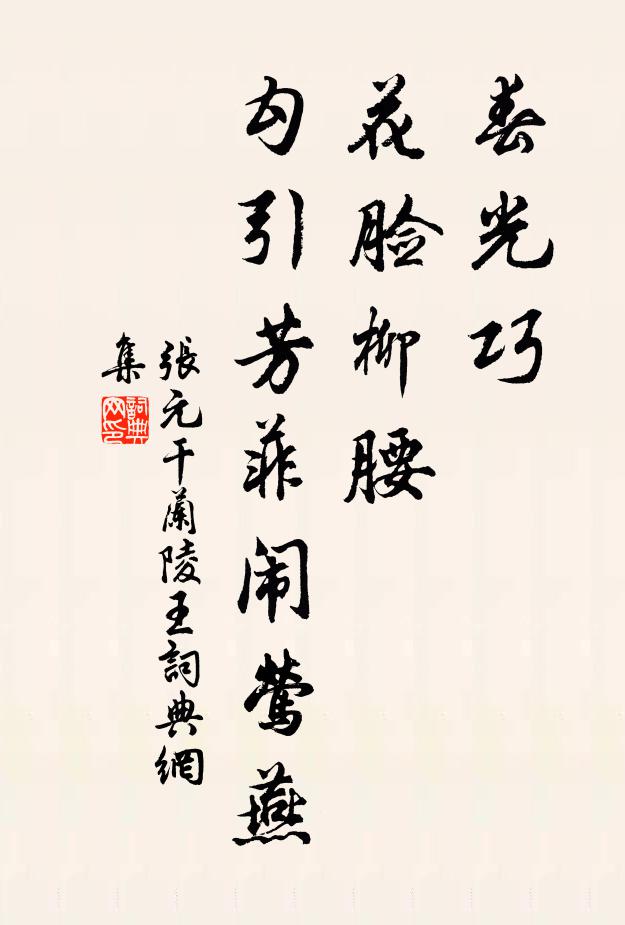 春光巧
花脸柳腰
勾引芳菲闹莺燕
張元干蘭陵王詞典網
集
詞典网印